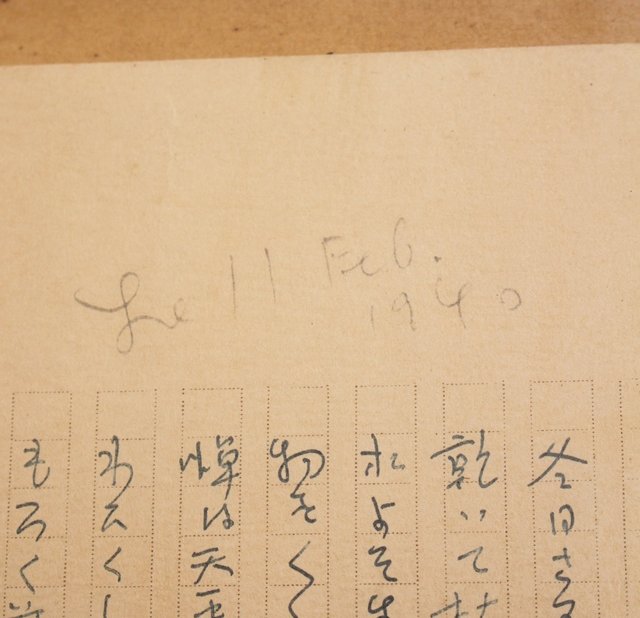 Le 11 Feb.
1940
冬日さ
乾いて
よそ
物をくく
は天
わたくし
もろく